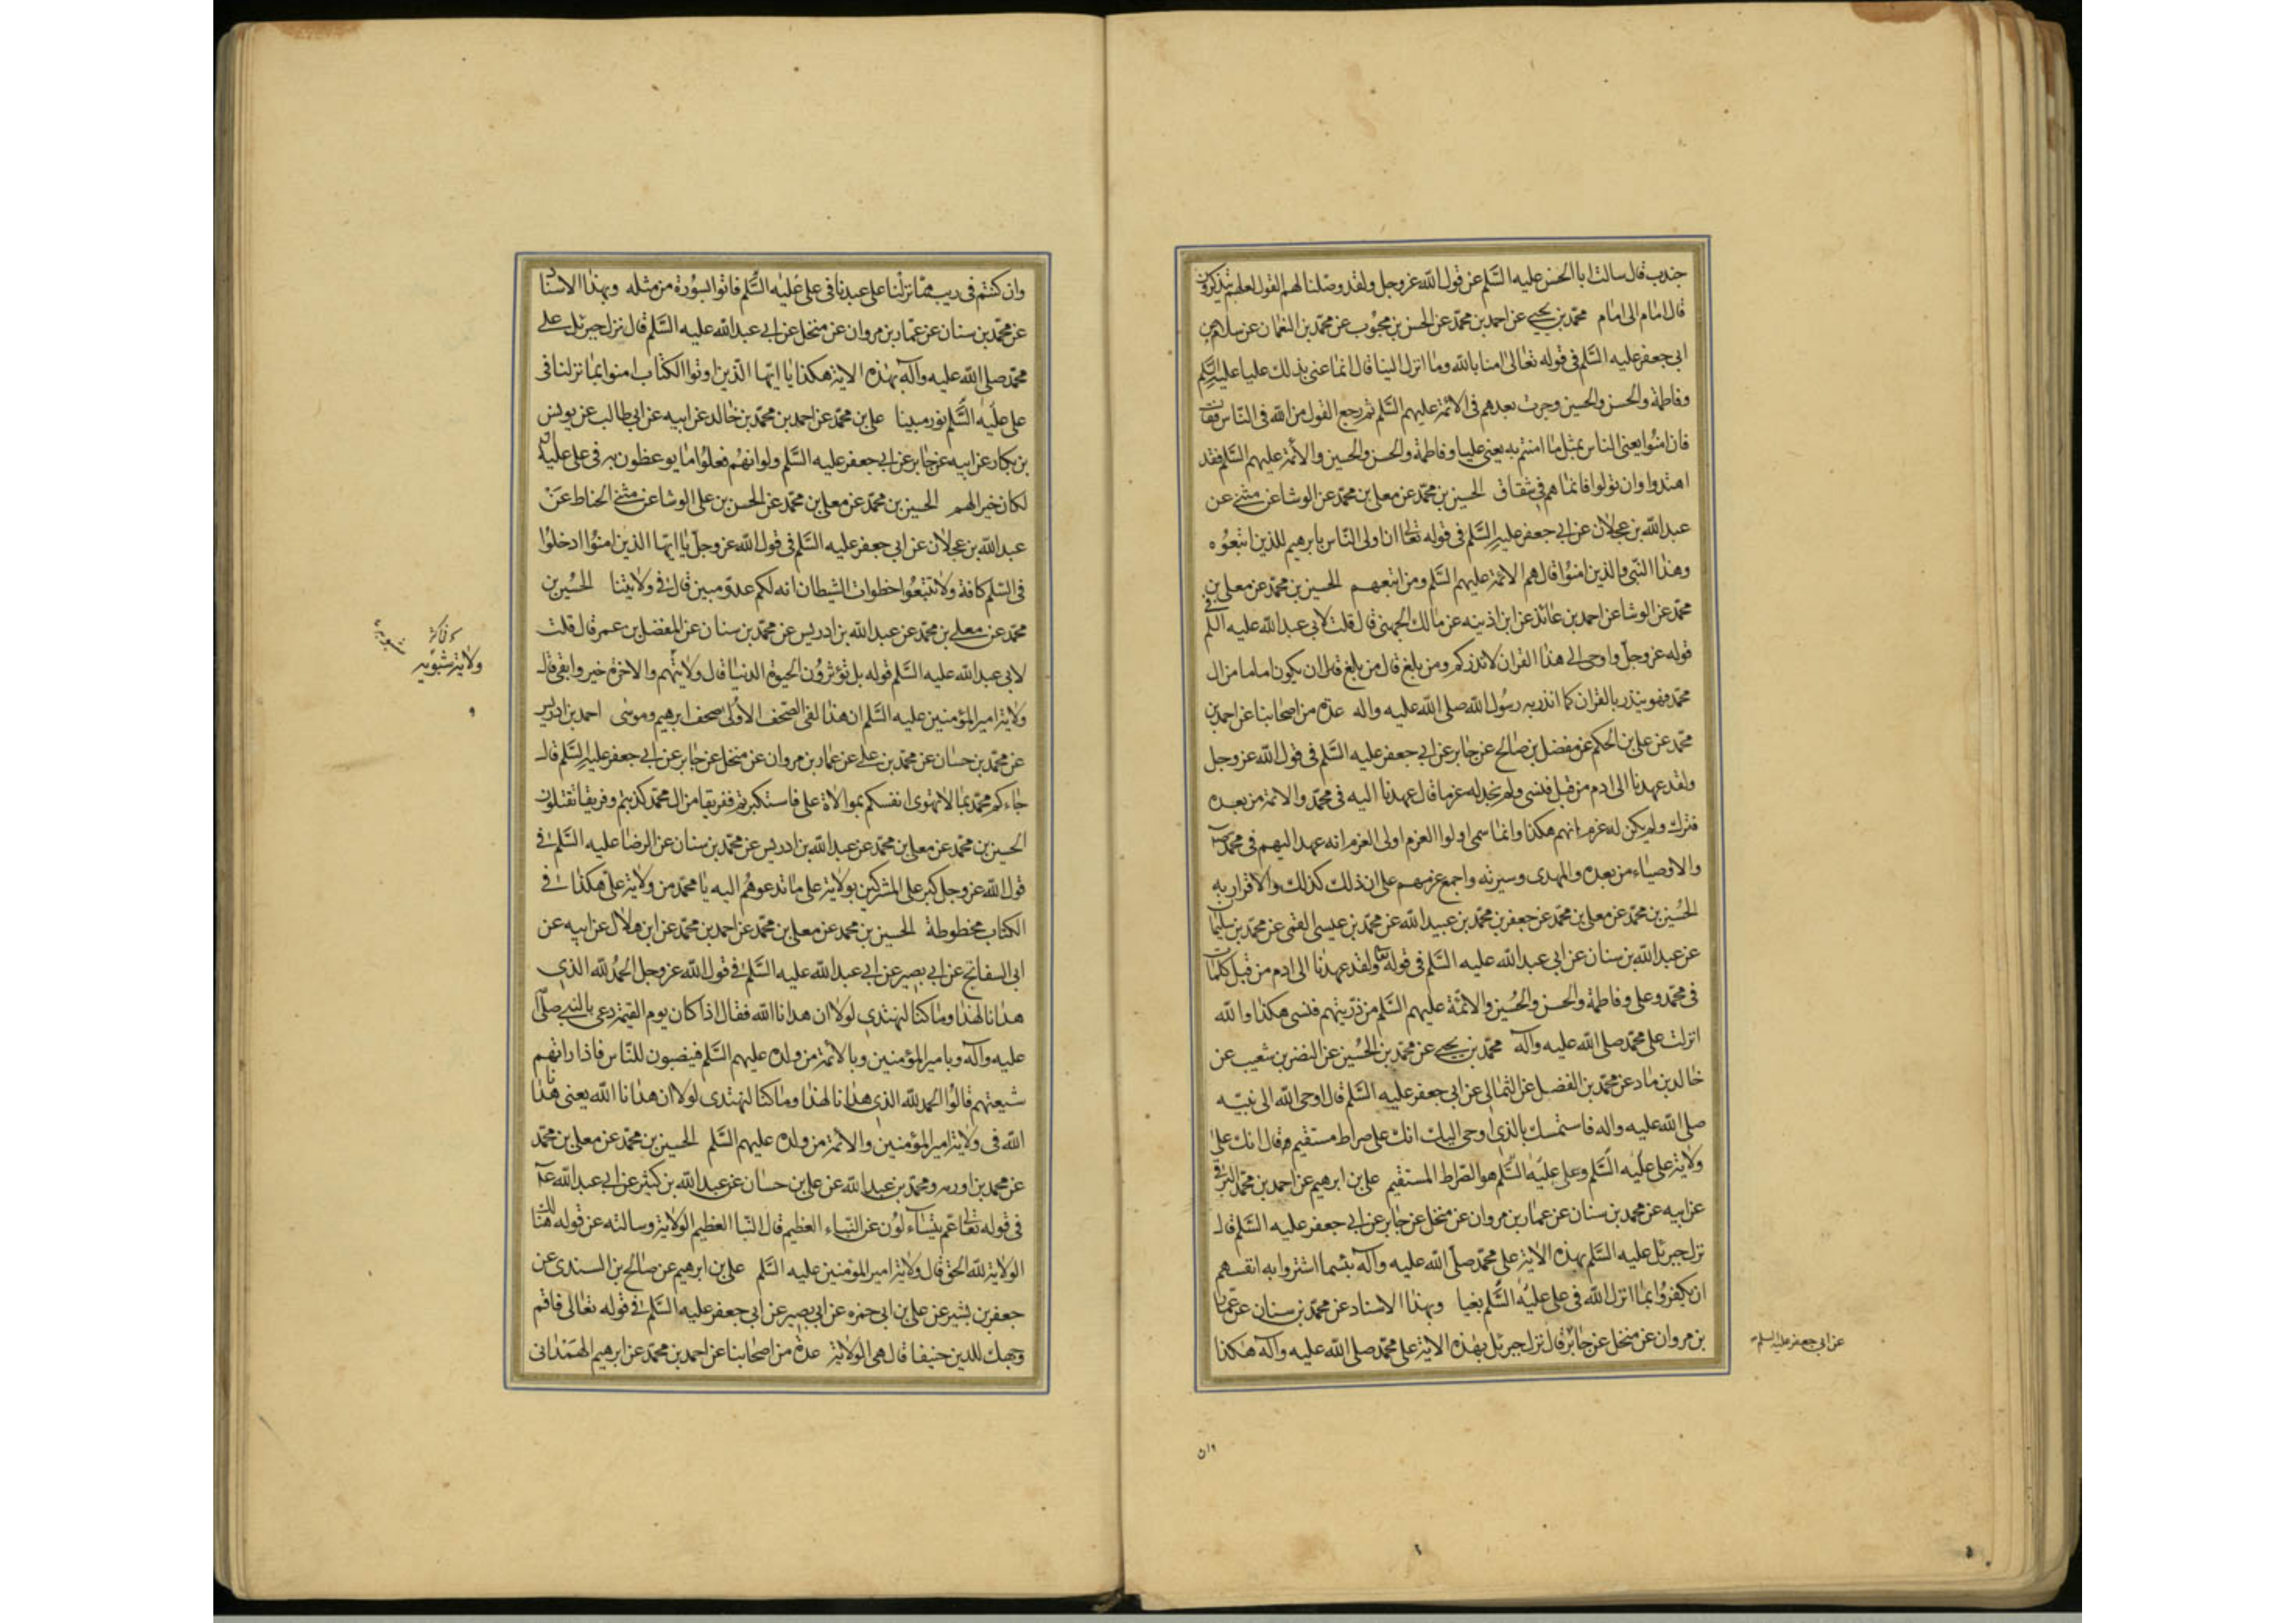 جندب قال سالت ابا الحسن عليه السلم عن قول الله عز وجل ولقد وصلنا لهم القول لعلهم يتذكرون
قال امام الى امام محمد بن يحيى عن احمد بن محمد عن الحسن بن محبوب عن محمد بن النعمان عن سلام عن
ابى جعفر عليه السلم فى قوله تعالى امنا بالله وما انزل الينا قال انما عنى بذلك عليا عليه السلم
وفاطمة والحسن والحسين وجرت بعدهم فى الائمة عليهم السلم ثم رجع القول من الله فى الناس فقال
فان امنوا يعنى الناس بمثل ما امنتم به يعنى عليا وفاطمة والحسن والحسين والائمة عليهم السلم فقد
اهتدوا وان تولوا فانما هم فى شقاق الحسين بن محمد عن معلى بن محمد عن الوشا عن مثنى عن
عبد الله بن عجلان عن ابى جعفر عليه السلم فى قوله تعالى ان اولى الناس بابرهيم للذين اتبعوه
وهذا النبى والذين امنوا قال هم الائمة عليهم السلم ومن اتبعهم الحسين بن محمد عن معلى بن
محمد عن الوشا عن احمد بن عائذ عن ابن اذينه عن مالك الجهنى قال قلت لابى عبد الله عليه السلم فى
قوله عز وجل واوحى الى هذا القران لانذركم ومن بلغ قال من بلغ قال ان يكون اماما من ال
محمد فهو ينذر بالقران كما انذر به رسول الله صلى الله عليه واله عدة من اصحابنا عن احمد بن
محمد عن على بن الحكم عن مفضل بن صالح عن جابر عن ابى جعفر عليه السلم فى قول الله عز وجل
ولقد عهدنا الى ادم من قبل فنسى ولم نجد له عزما قال عهدنا اليه فى محمد والائمة من بعده
فترك ولم يكن له عزم انهم هكذا وانما سمى اولوا العزم اولى العزم انه عهد اليهم فى محمد
والاوصياء من بعده والمهدى وسيرته واجمع عزمهم على ان ذلك كذلك والاقرار به
الحسين بن محمد عن معلى بن محمد عن جعفر بن محمد بن عبيد الله عن محمد بن عيسى القمى عن محمد بن سليمان
عن عبد الله بن سنان عن ابى عبد الله عليه السلم فى قوله ولقد عهدنا الى ادم من قبل كلمات
فى محمد وعلى وفاطمة والحسن والحسين والائمة عليهم السلم من ذريتهم فنسى هكذا والله
انزلت على محمد صلى الله عليه واله محمد بن يحيى عن محمد بن الحسين عن النضر بن شعيب عن
خالد بن ماد عن محمد بن الفضل عن الثمالى عن ابى جعفر عليه السلم قال اوحى الله الى نبيه
صلى الله عليه واله فاستمسك بالذى اوحى اليك انك على صراط مستقيم قال انك على
ولاية على عليه السلم وعلى عليه السلم هو الصراط المستقيم على بن ابرهيم عن احمد بن محمد البرقى
عن ابيه عن محمد بن سنان عن عمار بن مروان عن منخل عن جابر عن ابى جعفر عليه السلم قال
نزل جبرئل عليه السلم بهذه الاية على محمد صلى الله عليه واله بئسما اشتروا به انفسهم
ان يكفروا بما انزل الله فى على عليه السلم بغيا وبهذا الاسناد عن محمد بن سنان عن عمار
بن مروان عن منخل عن جابر قال نزل جبرئل بهذه الاية على محمد صلى الله عليه واله هكذا
عن ابى جعفر عليه السلم
وان
وان كنتم فى ريب مما نزلنا على عبدنا فى على عليه السلم فاتوا بسورة من مثله وبهذا الاسناد
عن محمد بن سنان عن عمار بن مروان عن منخل عن ابى عبد الله عليه السلم قال نزل جبرئل على
محمد صلى الله عليه واله بهذه الاية هكذا يا ايها الذين اوتوا الكتاب امنوا بما نزلنا فى
على عليه السلم نورا مبينا على بن محمد عن احمد بن محمد بن خالد عن ابيه عن ابى طالب عن يونس
بن بكار عن ابيه عن جابر عن ابى جعفر عليه السلم ولو انهم فعلوا ما يوعظون به فى على عليه
لكان خيرا لهم الحسين بن محمد عن معلى بن محمد عن الحسن بن على الوشا عن مثنى الحناط عن
عبد الله بن عجلان عن ابى جعفر عليه السلم فى قول الله عز وجل يا ايها الذين امنوا ادخلوا
فى السلم كافة ولا تتبعوا خطوات الشيطان انه لكم عدو مبين قال فى ولايتنا الحسين بن
محمد عن معلى بن محمد عن عبد الله بن ادريس عن محمد بن سنان عن المفضل بن عمر قال قلت
لابى عبد الله عليه السلم قوله بل تؤثرون الحيوة الدنيا قال ولايتهم والاخرة خير وابقى قال
ولاية امير المؤمنين عليه السلم ان هذا لفى الصحف الاولى صحف ابرهيم وموسى احمد بن ادريس
عن محمد بن حسان عن محمد بن على عن عمار بن مروان عن منخل عن جابر عن ابى جعفر عليه السلم قال
جاءكم محمد بما لا تهوى انفسكم بموالاة على فاستكبرتم ففريقا من ال محمد كذبتم وفريقا تقتلون
الحسين بن محمد عن معلى بن محمد عن عبد الله بن ادريس عن محمد بن سنان عن الرضا عليه السلم فى
قول الله عز وجل كبر على المشركين بولاية على ما تدعوهم اليه يا محمد من ولاية على هكذا فى
الكتاب مخطوطة الحسين بن محمد عن معلى بن محمد عن احمد بن محمد عن ابن هلال عن ابيه عن
ابى السفاتج عن ابى بصير عن ابى عبد الله عليه السلم فى قول الله عز وجل الحمد لله الذى
هدانا لهذا وما كنا لنهتدى لولا ان هدانا الله فقال اذا كان يوم القيمة دعى بالنبى صلى
عليه واله وبامير المؤمنين وبالائمة من ولده عليهم السلم فينصبون للناس فاذا راتهم
شيعتهم قالوا الحمد لله الذى هدانا لهذا وما كنا لنهتدى لولا ان هدانا الله يعنى هدانا
الله فى ولاية امير المؤمنين والائمة من ولده عليهم السلم الحسين بن محمد عن معلى بن محمد
عن محمد بن اورمه ومحمد بن عبد الله عن على بن حسان عن عبد الله بن كثير عن ابى عبد الله ع
فى قوله تعالى عم يتساءلون عن النباء العظيم قال النبا العظيم الولاية وسالته عن قوله هنالك
الولاية لله الحق قال ولاية امير المؤمنين عليه السلم على بن ابرهيم عن صالح بن السندى عن
جعفر بن بشير عن على بن ابى حمزه عن ابى بصير عن ابى جعفر عليه السلم فى قوله تعالى فاقم
وجهك للدين حنيفا قال هى الولاية عدة من اصحابنا عن احمد بن محمد عن ابرهيم الهمدانى